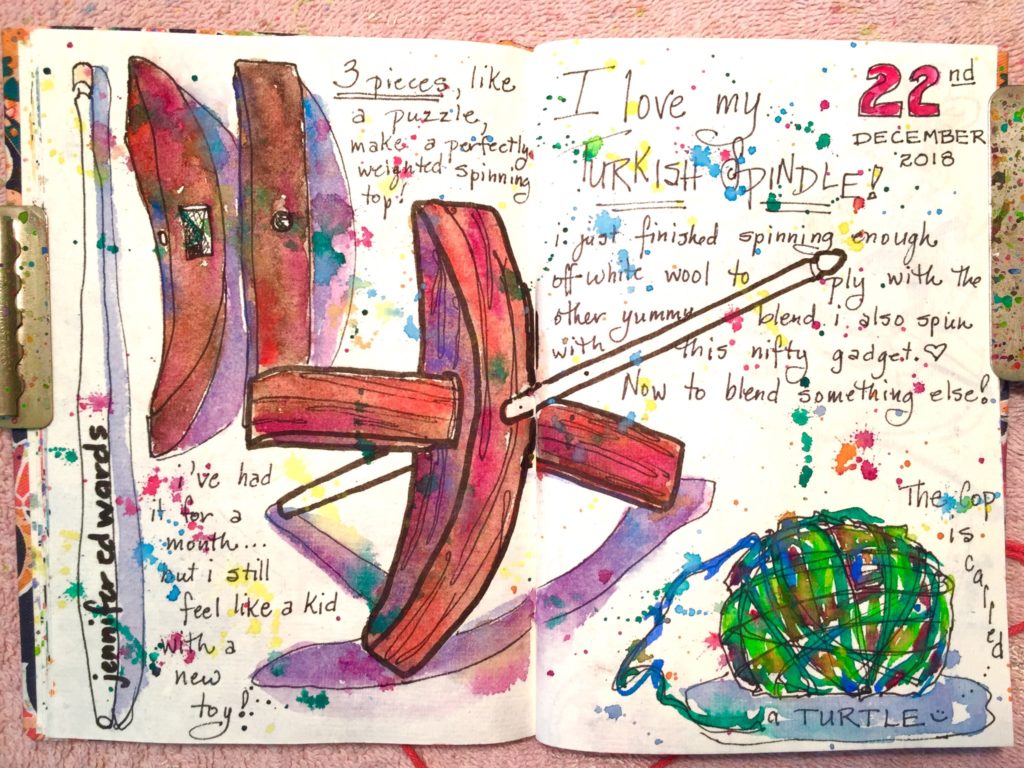 3 pieces, like
a puzzle,
make a perfectly
weighted spinning
top!
i've had
it for a
month...
but i still
feel like a kid
with a
new
toy!
jennifer edwards
22nd
DECEMBER
2018
I love my
TURKISH SPINDLE!
i just finished spinning enough
off-white wool to ply with the
other yummy blend i also spun
with this nifty gadget.♡
Now to blend something else!
The Cop
is
called
a TURTLE☺